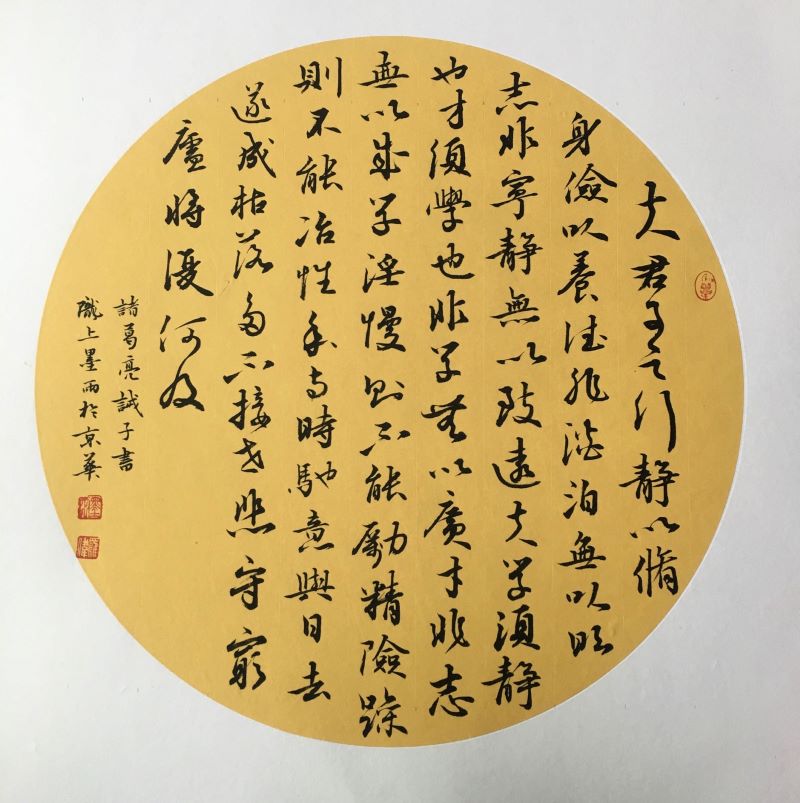 夫君子之行静以脩
身儉以養德非澹泊無以明
志非寧静無以致遠夫学須静
也才須學也非学無以廣才非志
無以成学淫慢則不能勵精險躁
則不能冶性年与時馳意與日去
遂成枯落多不接世悲守窮
廬將復何及
諸葛亮誡子書
隴上墨雨於京華